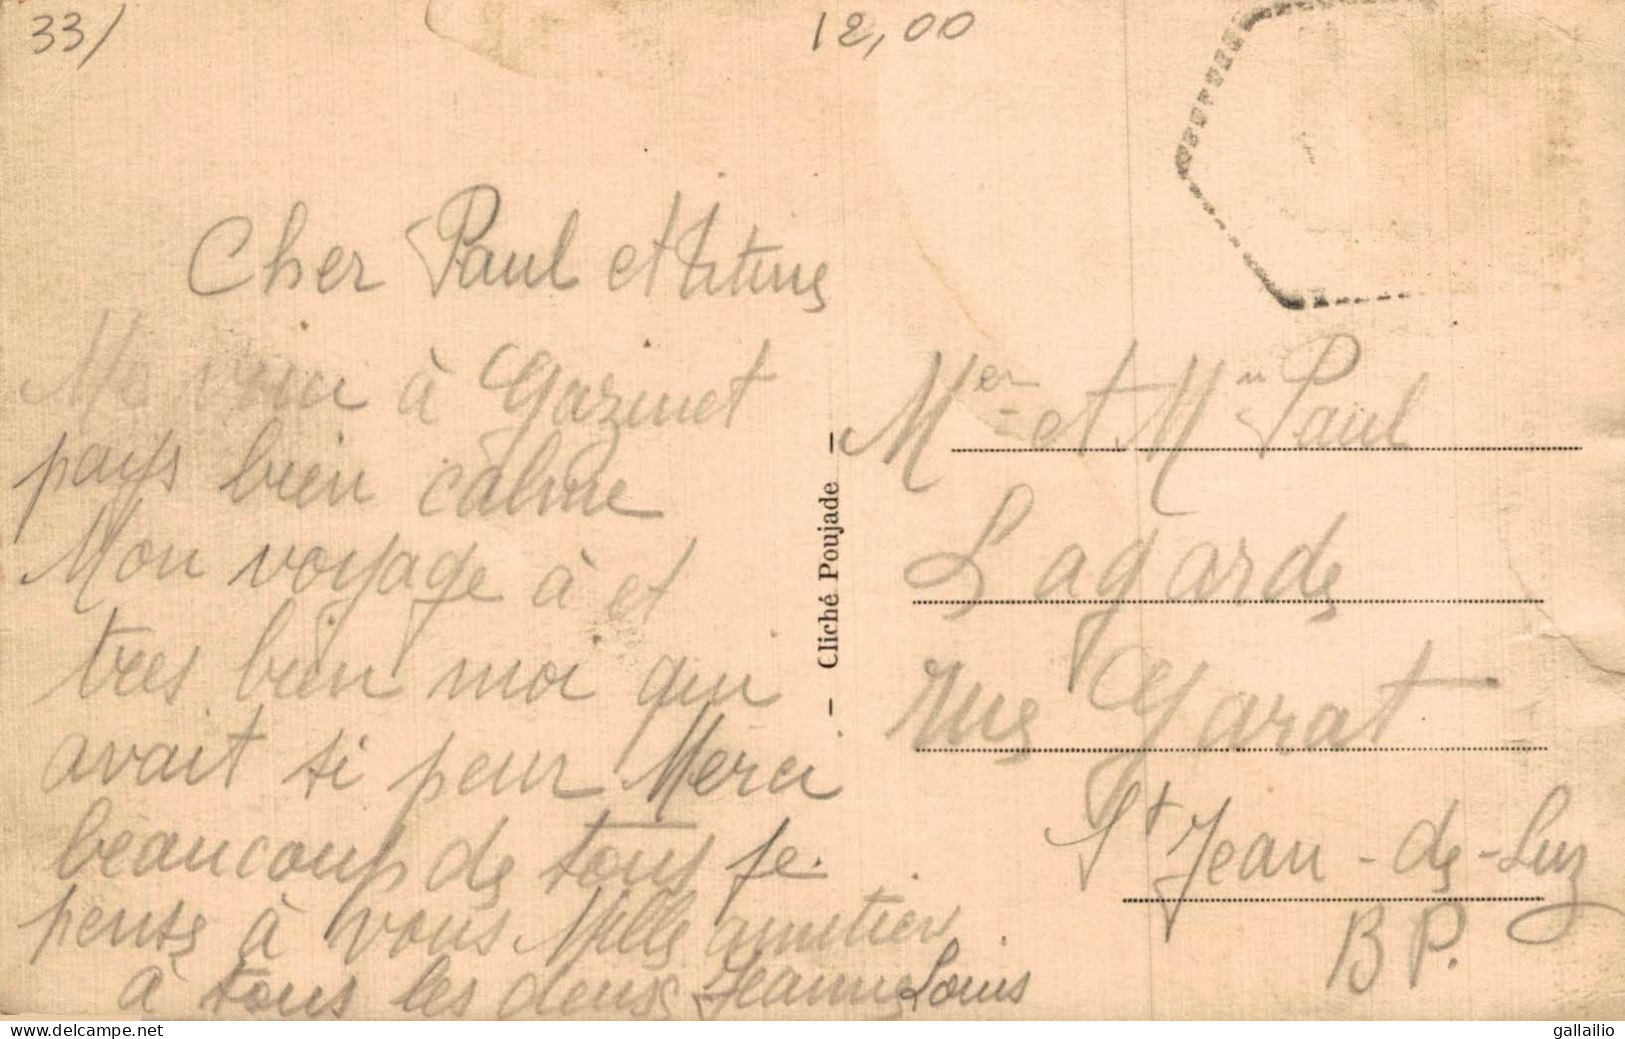 33/
12,00
Cher Paul et Titine
Me voici à Gazinet
pays bien calme
Mon voyage à et
tres bien moi qui
avait si peur Merci
beaucoup de tous je
pense à vous Mille amitiers
à tous les deux Jeanne Louis
- Cliché Poujade -
Mer et Mm Paul
Lagarde
rue Garat
St Jean-de-Luz
B P.
delcampe.net
gallailio